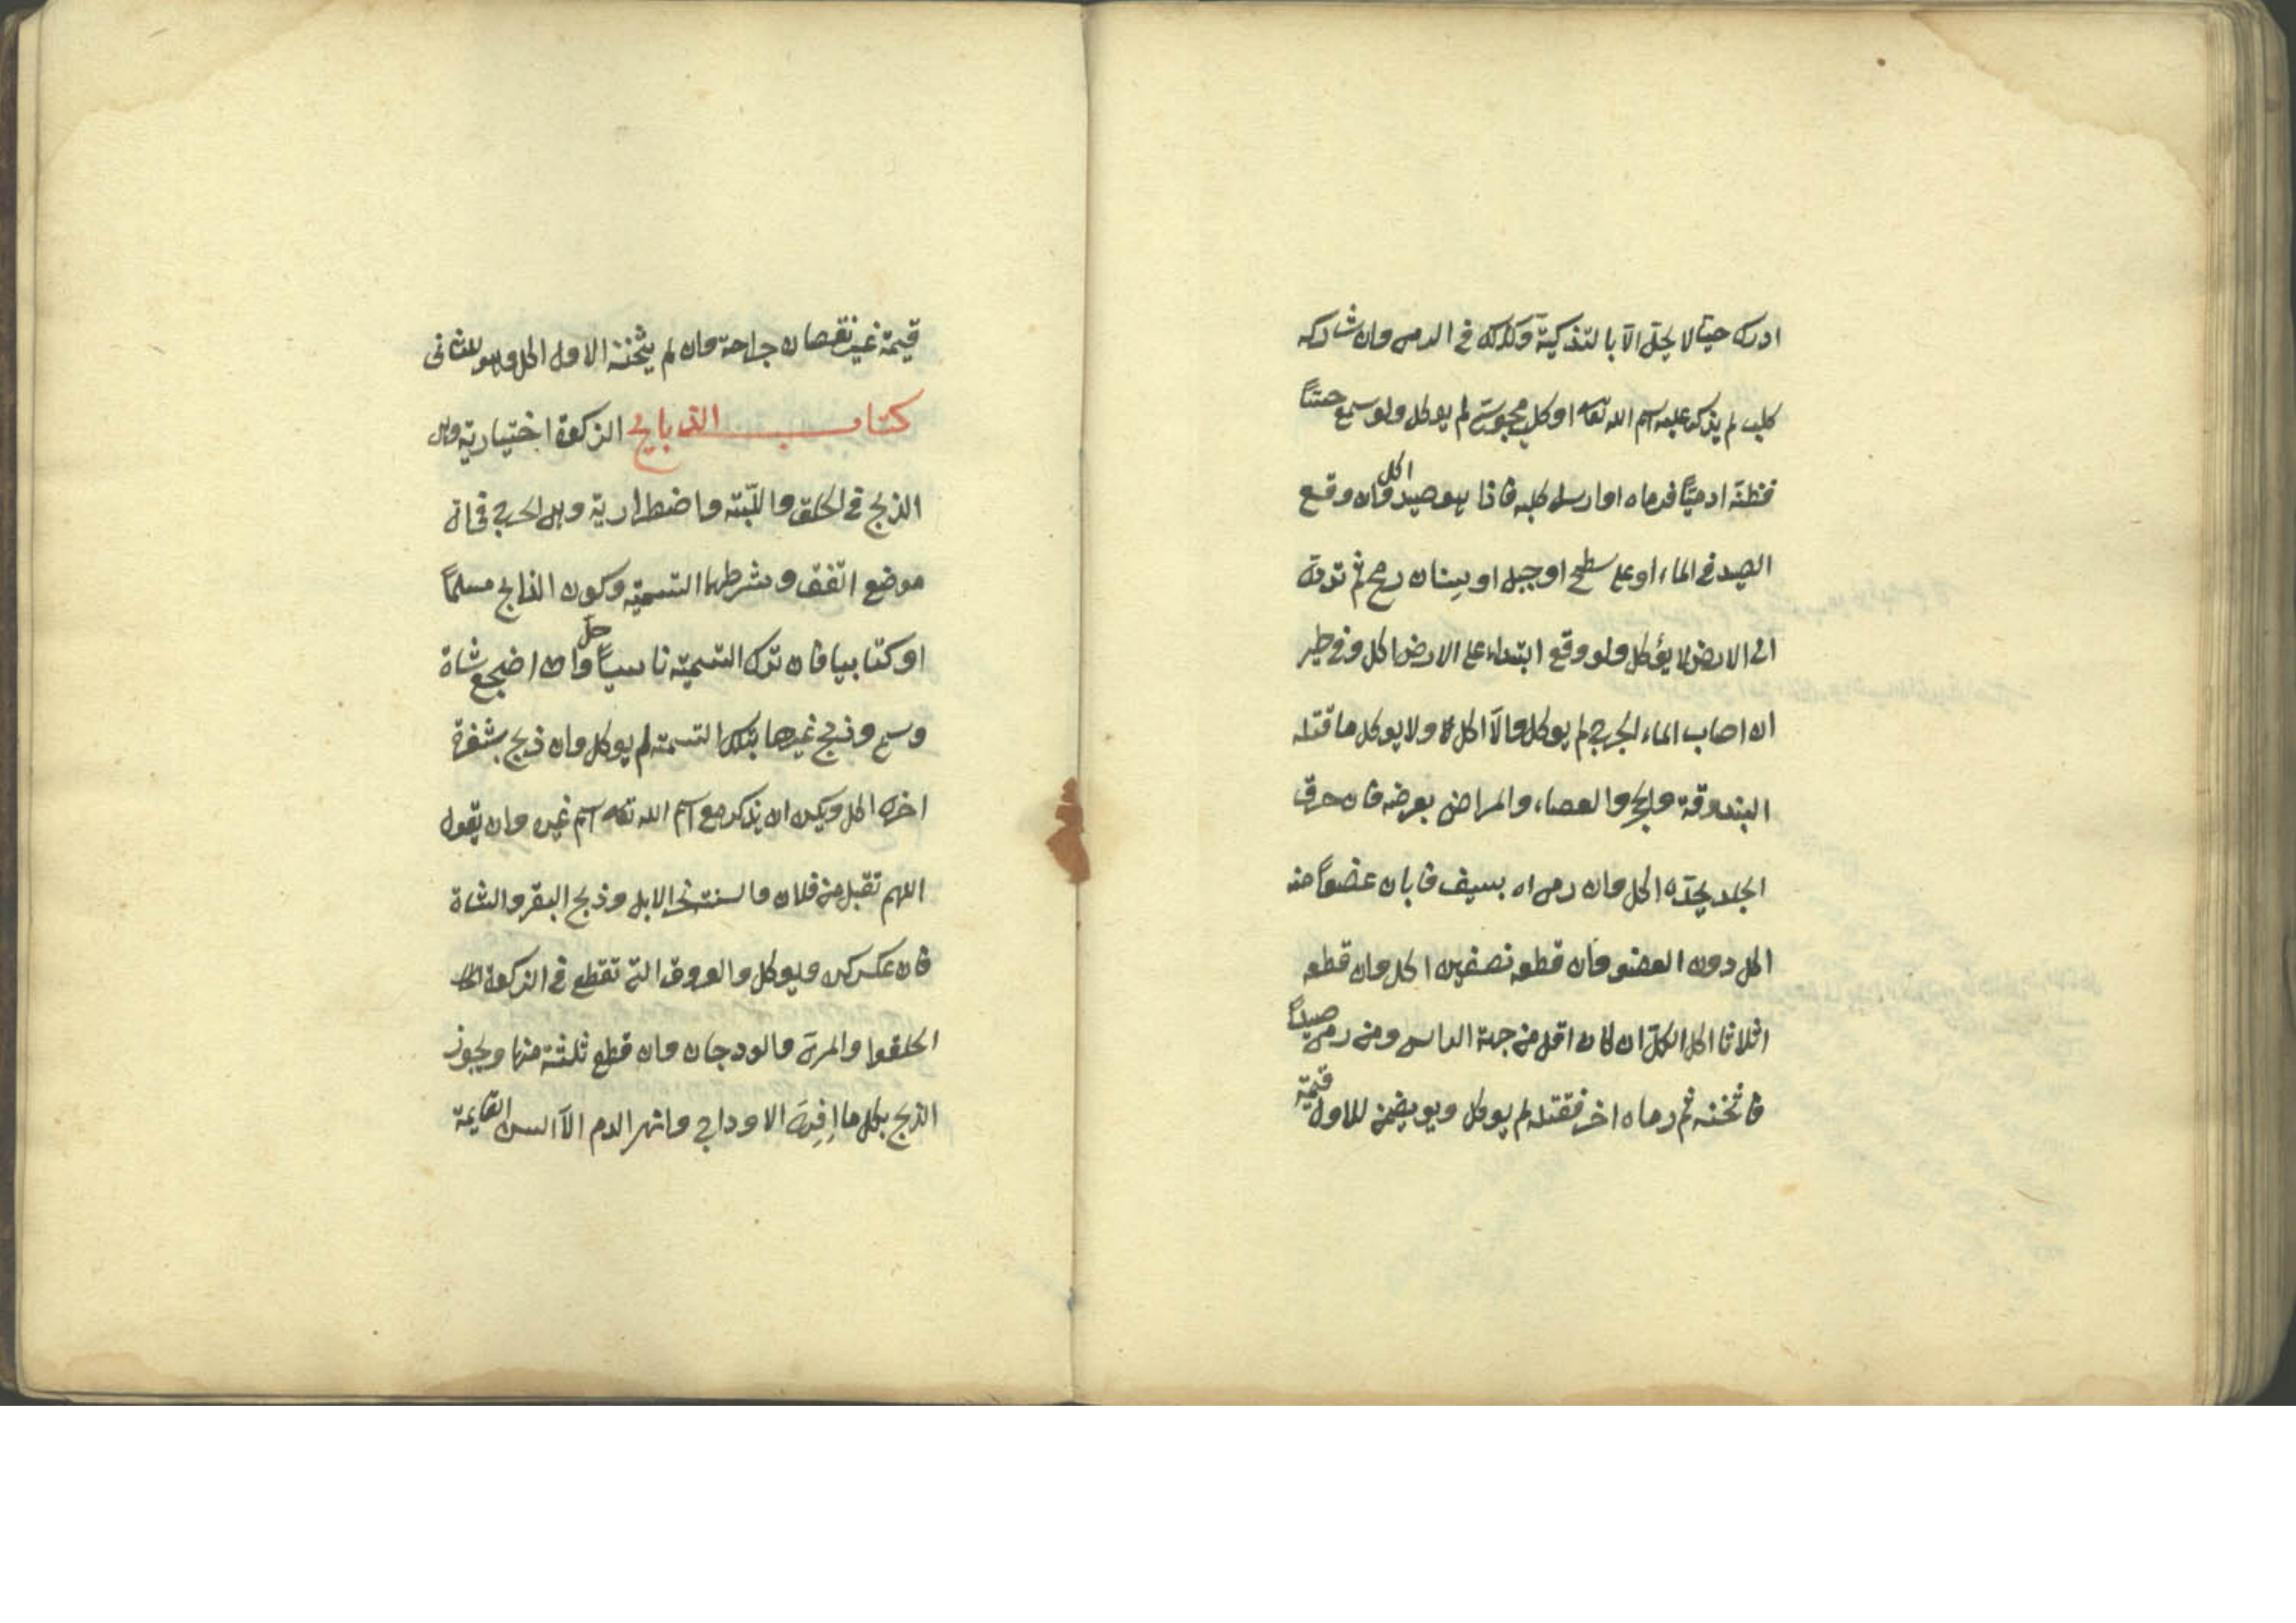 ادرك حيا لا يحل الا بالتذكية وكذلك في الرمي وان شاركه
كلب لم يذكر عليه اسم الله تعه او كلب مجوسي لم يوكل ولو سمع حسًا
فظنه ادميًا فرماه او ارسل كلبه فاذا هو صيد اكل وان وقع
الصيد في الماء او على سطح او جبل او سنان رمح ثم تردى
الى الارض لا يؤكل ولو وقع ابتداء على الارض اكل وفي طير
ان اصاب الماء الجرح لم يوكل والا اكل ولا يوكل ما قتله
البندوقة والحجر والعصاء والمراض بعرضه فان خرق
الجلد بحده اكل وان رماه بسيف فابان عضوًا منه
اكل دون العضو وان قطعه نصفين اكل وان قطعه
اثلاثا اكل الكل ان كان اقل من جهة الراس ومن رمى صيدًا
فاثخنه ثم رماه اخر فقتله لم يوكل ويضمن للاول قيمته
قيمة غير نقصان جراحة وان لم يثخنه الاول اكل وهو للثانى
كتاب الذبايح الذكوة اختيارية وهي
الذبح في الحلق واللبته واضطرارية وهي الجرح في اى
موضع اتفق وشرطها التسمية وكون الذابح مسلمًا
او كتابيا فان ترك التسمية ناسيًا حل وان اضجع شاة
وسمى وذبح غيرها بتلك التسمية لم يوكل وان ذبح بشفرة
اخرى اكل ويكره ان يذكر مع اسم الله تعه اسم غيره وان يقول
اللهم تقبل من فلان والسنة نحر الابل وذبح البقر والشاة
فان عكس كره ويوكل والعروق التي تقطع في الذكوة
الحلقوا والمرى والودجان وان قطع ثلثة منها ويجوز
الذبح بكل ما افرى الاوداج وانهر الدم الا السن القايمة